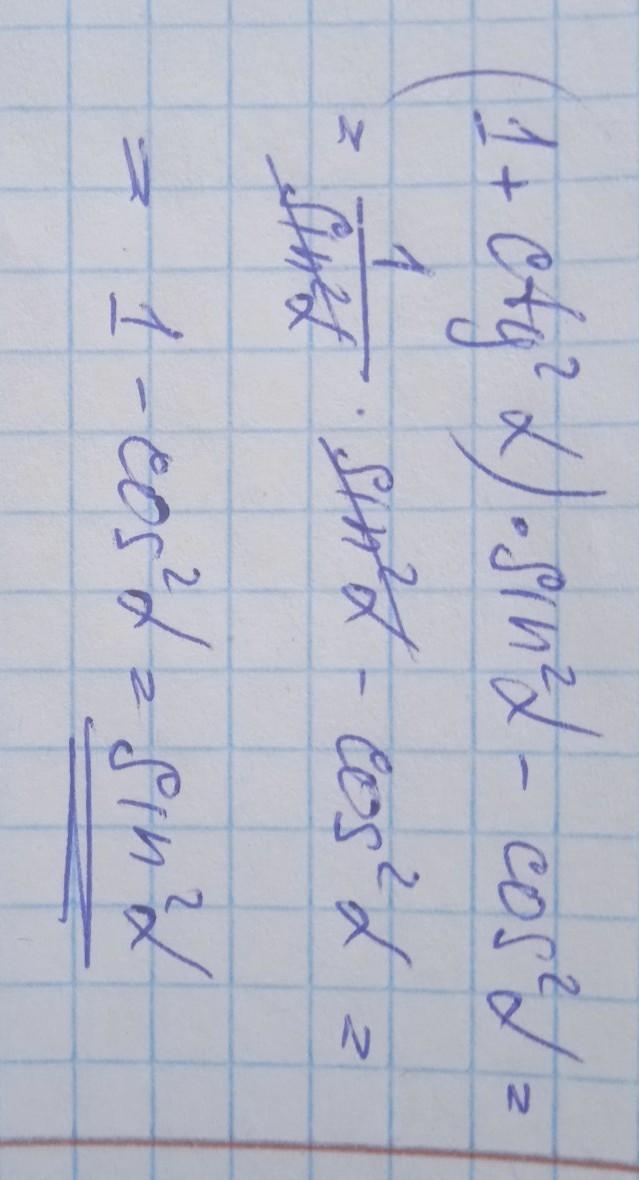 (1 + ctg²α) · sin²α - cos²α =
= 1/sin²α · sin²α - cos²α =
= 1 - cos²α = sin²α